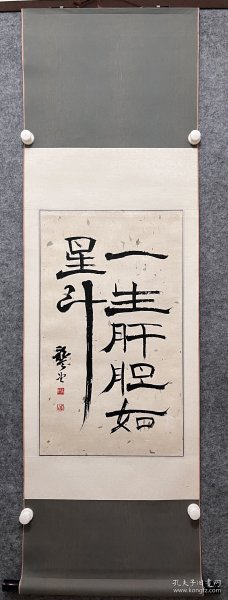 一生肝胆如
星斗
孔夫子旧书网
www.kongfz.com